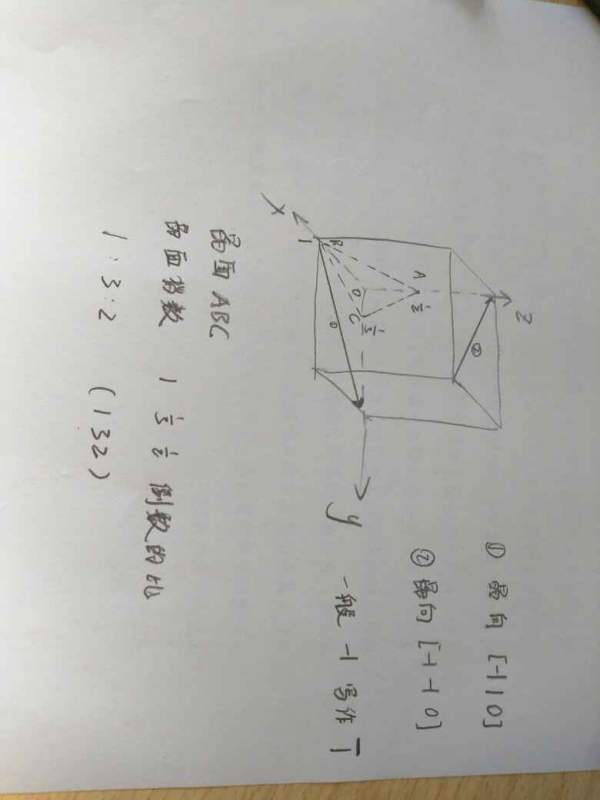 Z
A
1/2
②
O
C
1/3
B
1
①
X
y
① 晶向 [-1 1 0]
② 晶向 [-1 -1 0]
一般 -1 写作 1̄
晶面 ABC
晶面指数 1 1/3 1/2 倒数的比
1:3:2 (132)